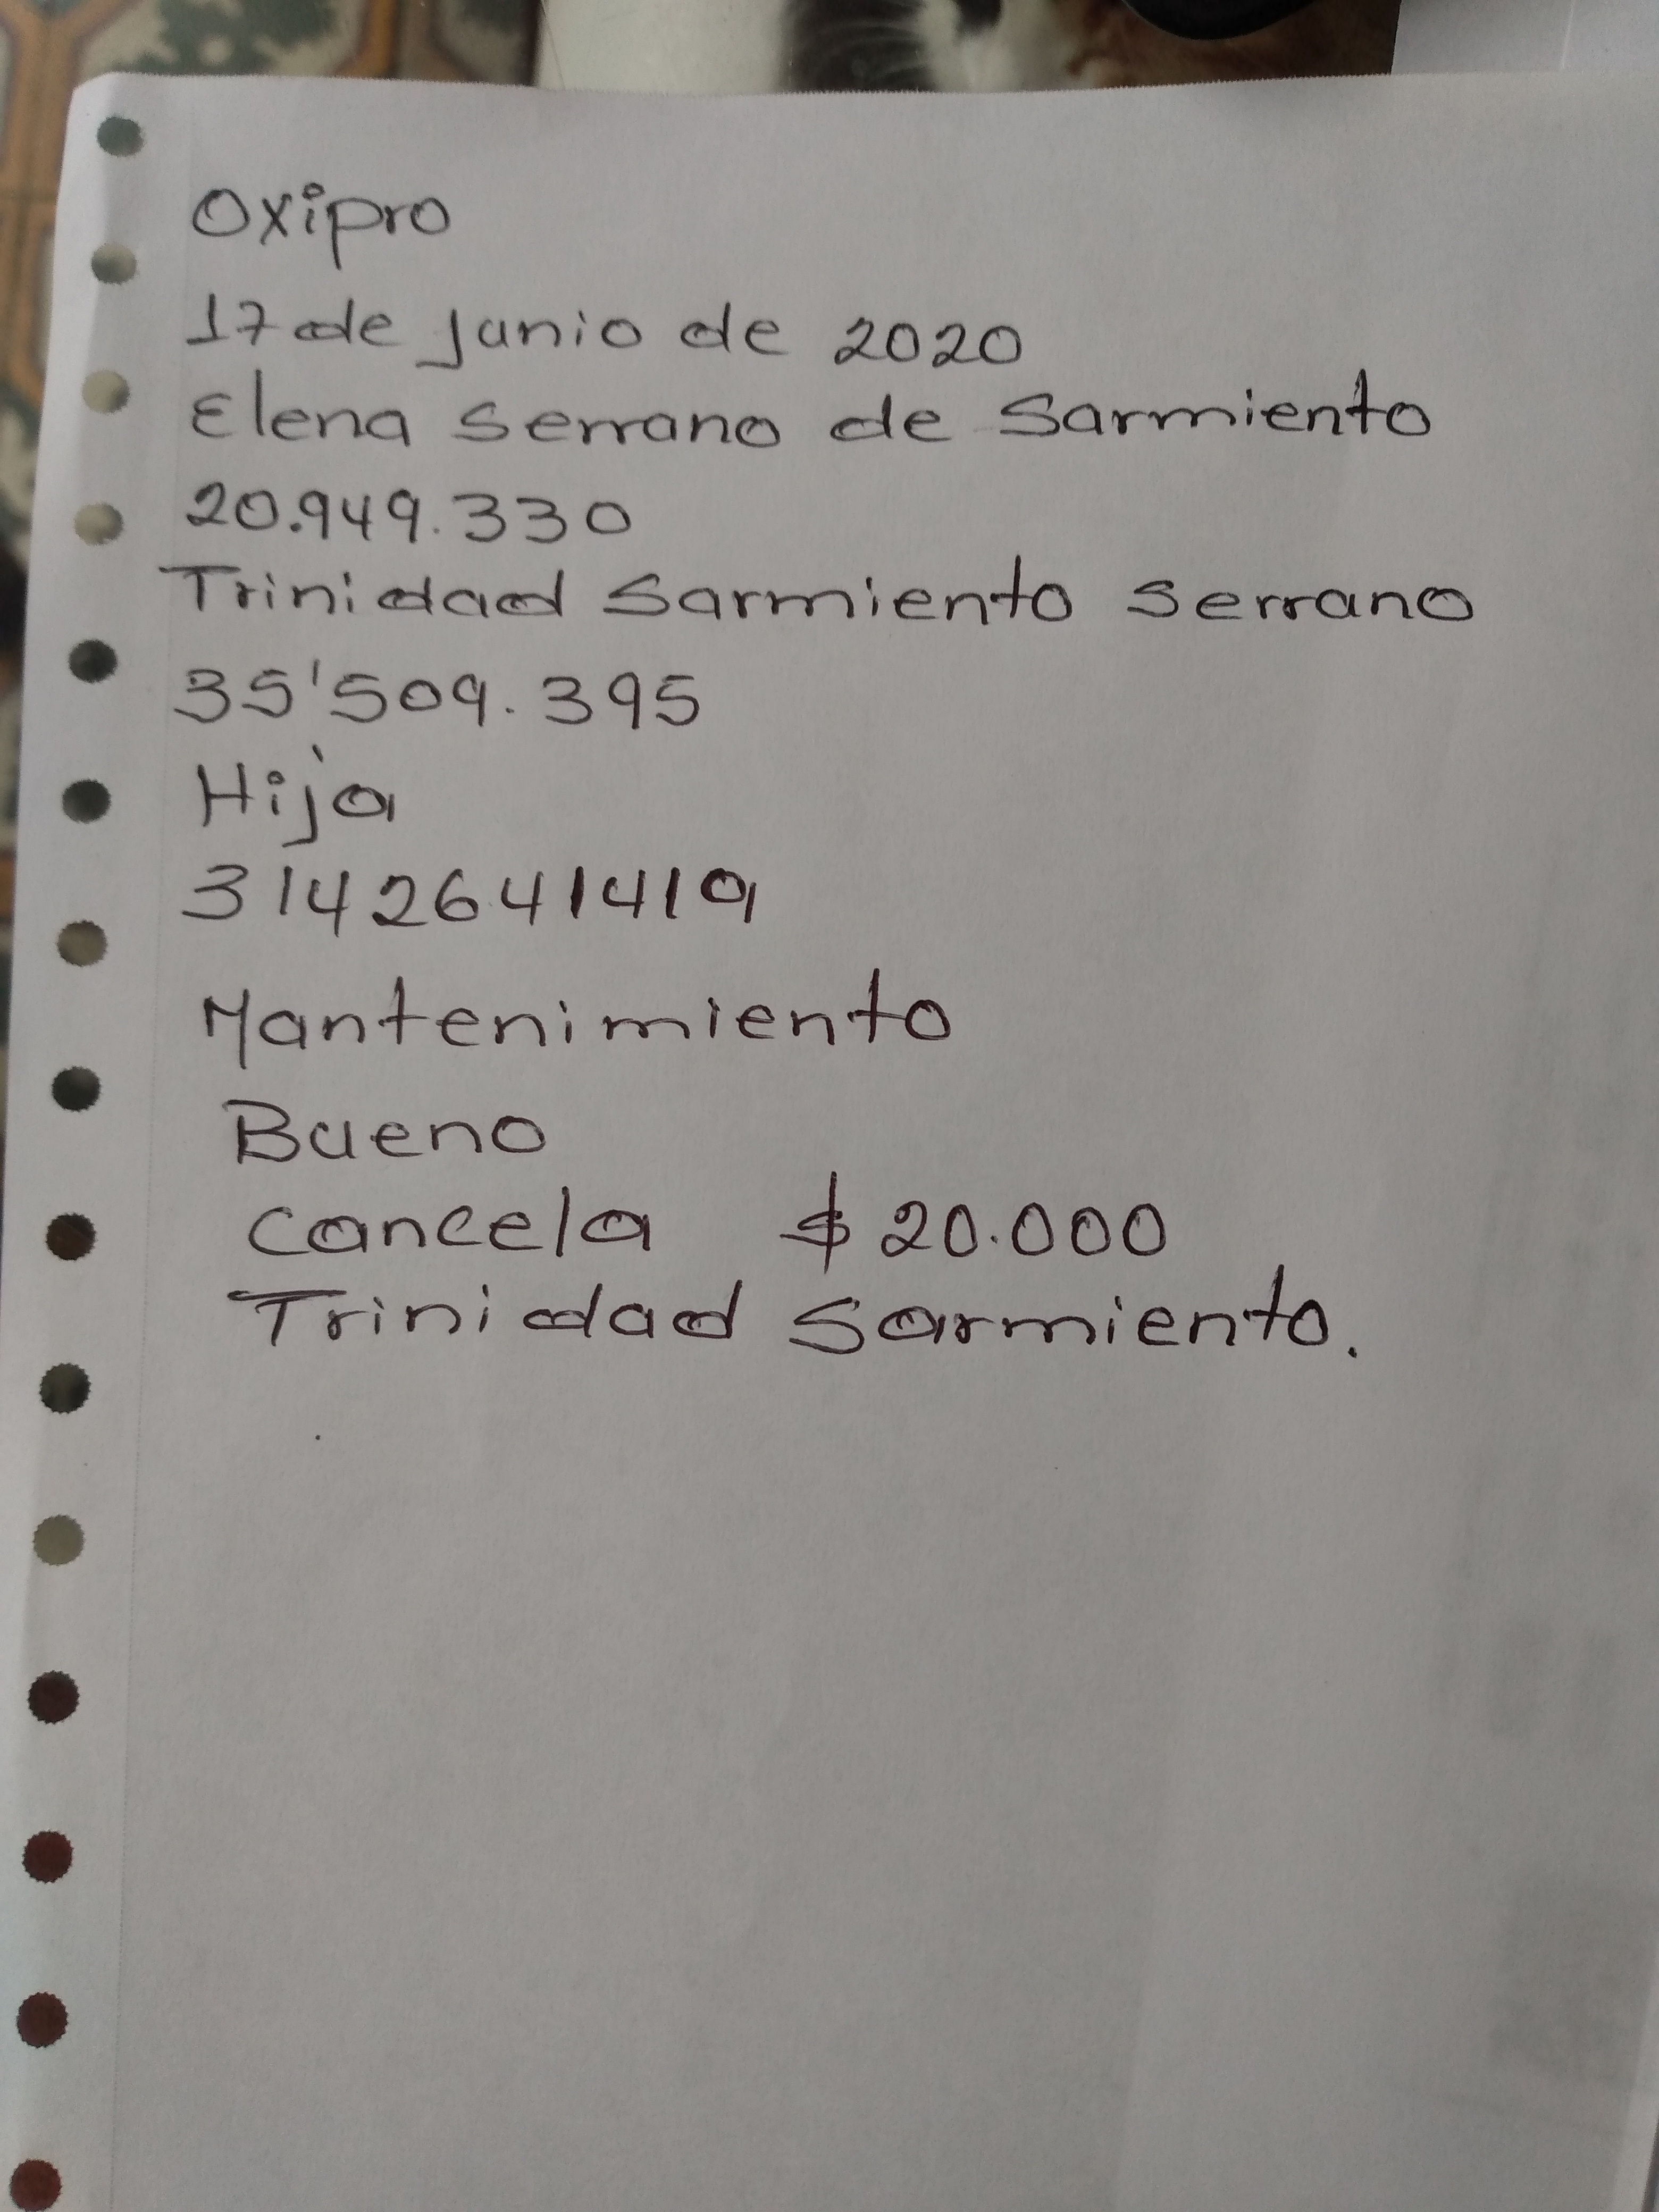 Oxipro
17 de junio de 2020
Elena Serrano de Sarmiento
20.949.330
Trinidad Sarmiento Serrano
35'509.395
Hija
3142641419
Mantenimiento
Bueno
Cancela $ 20.000
Trinidad Sarmiento.